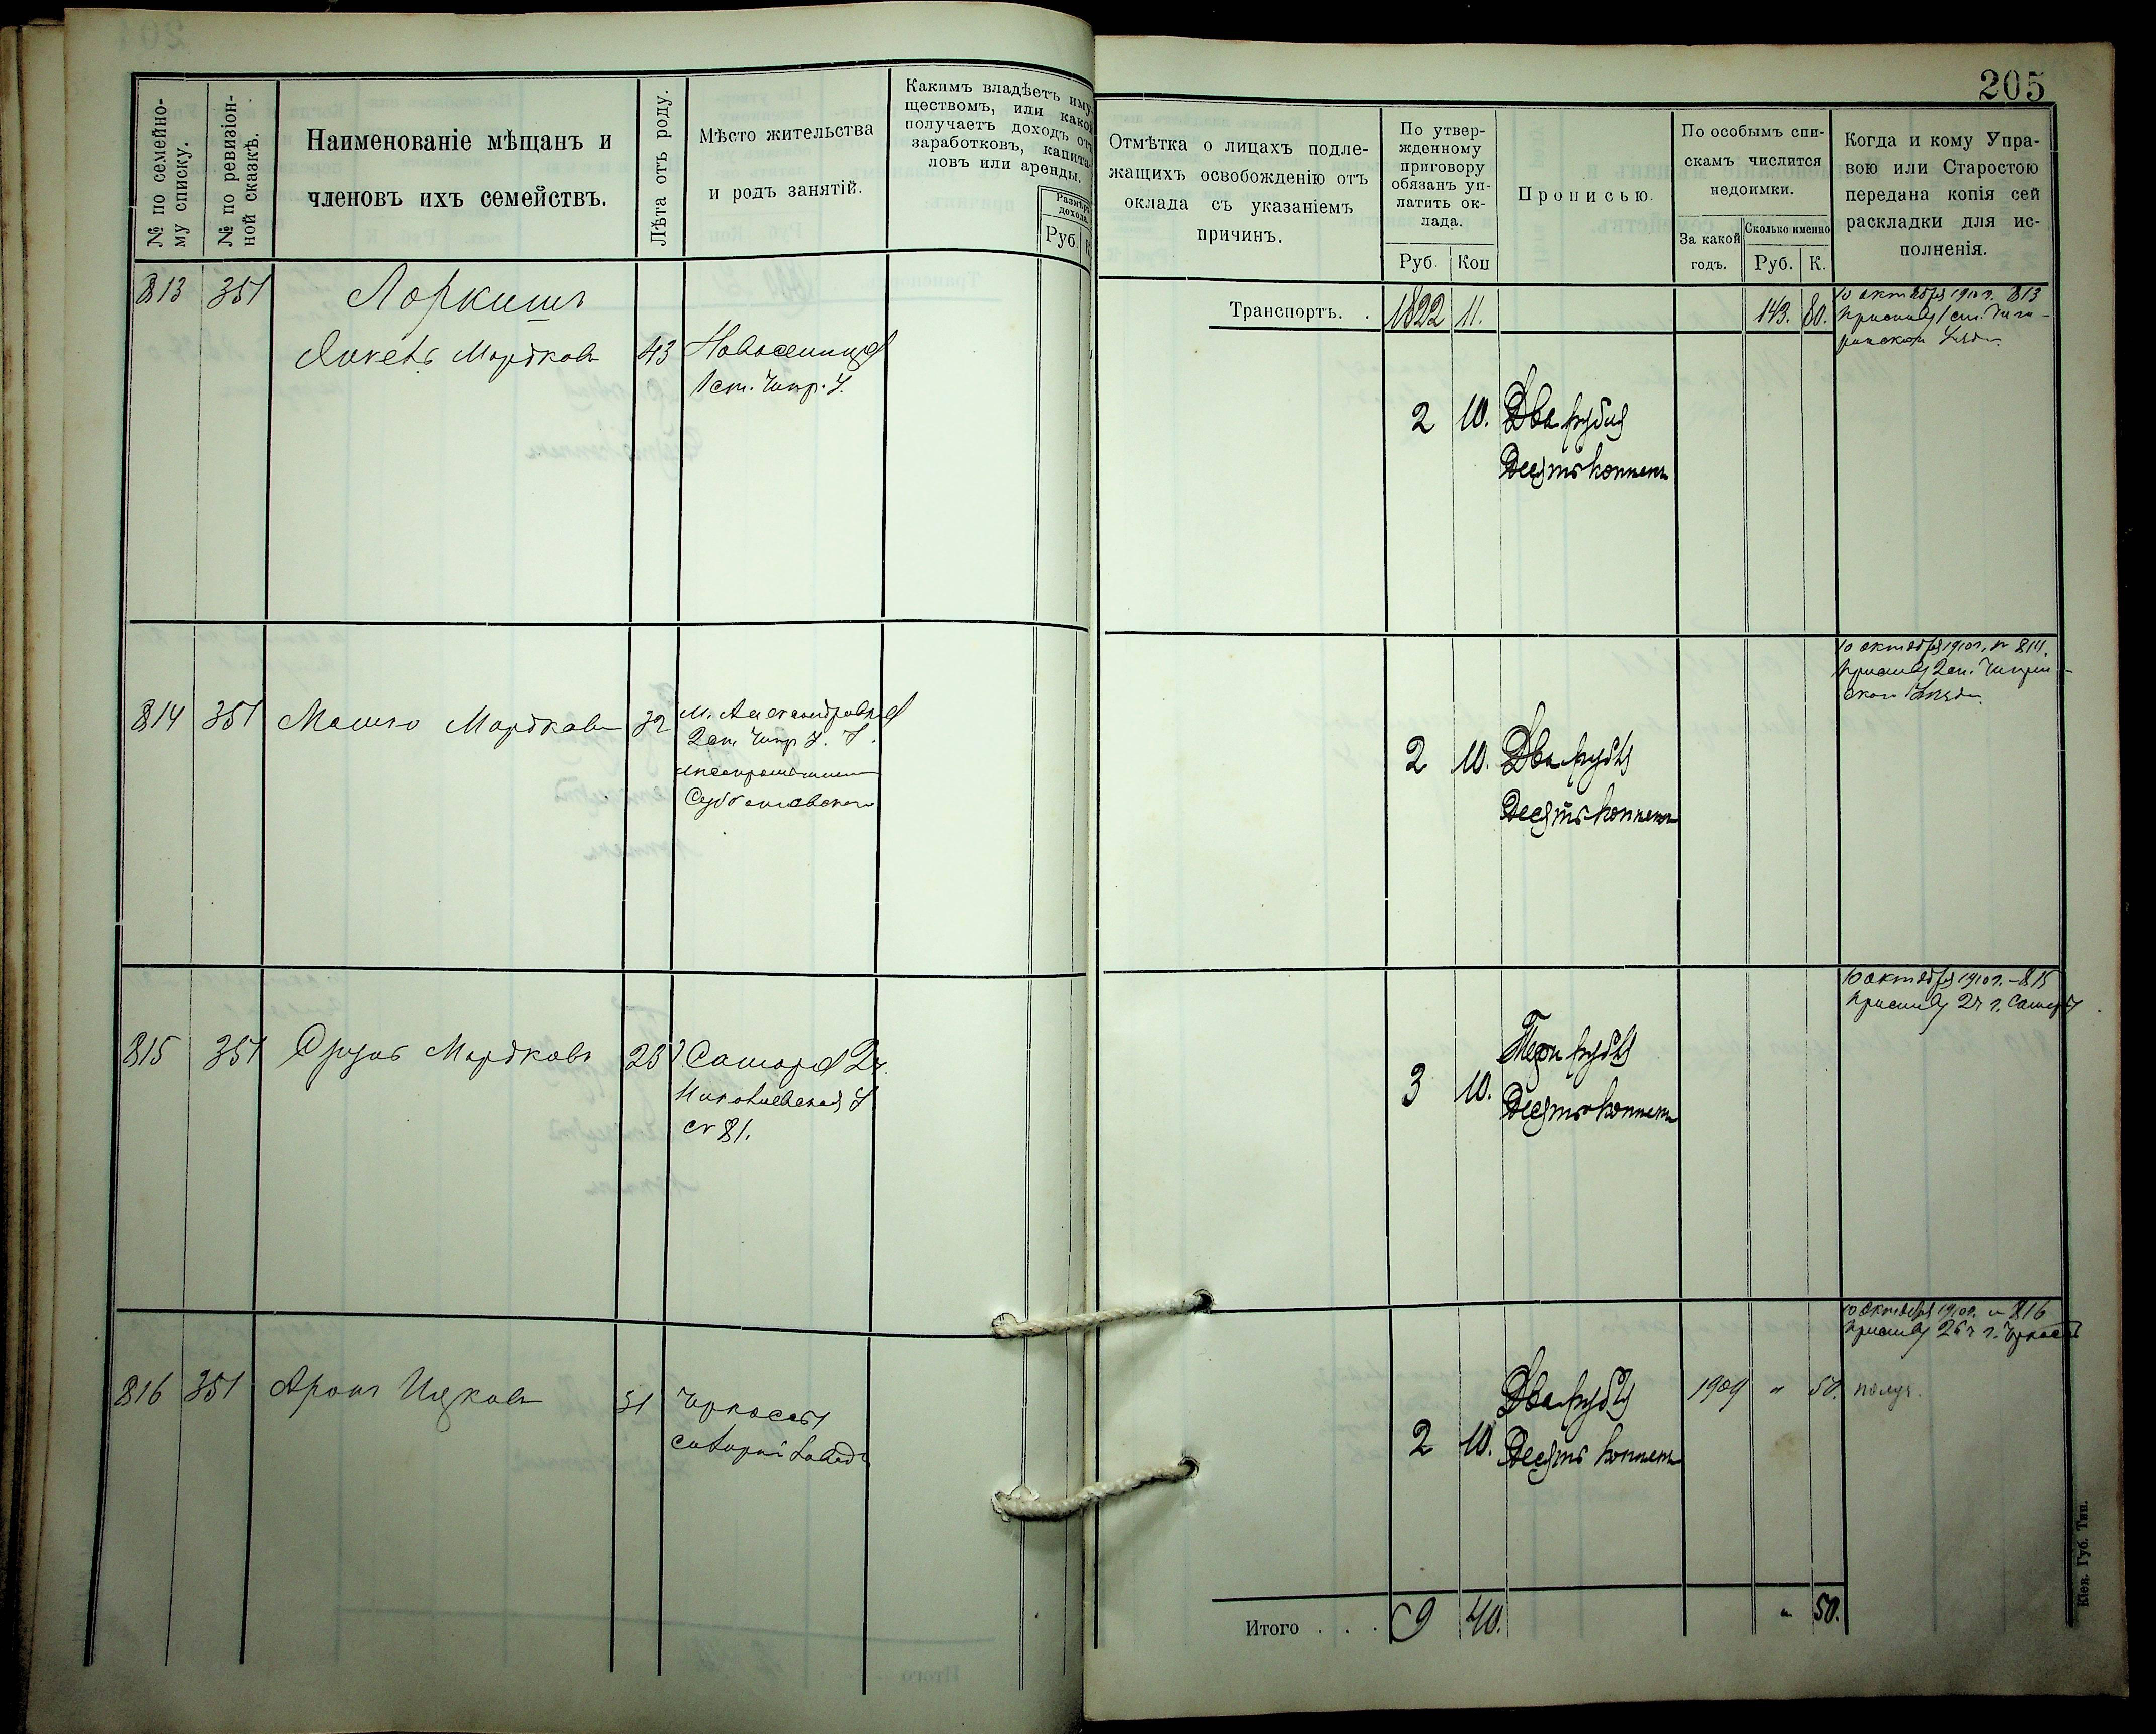 205
№ по семейно-
му списку.
№ по ревизіон-
ной сказкѣ.
Наименованіе мѣщанъ и
членовъ ихъ семействъ.
Лѣта отъ роду.
Мѣсто жительства
и родъ занятій.
Какимъ владѣетъ иму-
ществомъ, или какой
получаетъ доходъ отъ
заработковъ, капита-
ловъ или аренды.
Размѣръ
дохода.
Руб. К
813 351
Мордковъ 43
1 ст. Чигр. У.
814 351 Мошко Мордковъ 32 М. Александровка
2 ст. Чигр. У.
815 351 Мордковъ 26
№ 81.
816 351 Аронъ Ицковъ 31 Черкассы
Отмѣтка о лицахъ подле-
жащихъ освобожденію отъ
оклада съ указаніемъ
причинъ.
По утвер-
жденному
приговору
обязанъ уп-
латить ок-
лада.
Руб. Коп
Прописью.
По особымъ спи-
скамъ числится
недоимки.
За какой
годъ.
Сколько именно
Руб. К.
Когда и кому Упра-
вою или Старостою
передана копія сей
раскладки для ис-
полненія.
Транспортъ. . 1822 11. 143. 80.
10 октября 1910 г. 813
Приставу 1 ст. Чиги-
ринского Уезда.
2 10. Два рубля
Десять копеекъ
10 октября 1910 г. № 814.
Приставу 2 ст. Чигирин-
ского Уезда.
2 10. Два рубля
Десять копеекъ
10 октября 1910 г. № 815
Приставу 2 ч. г.
3 10. Три рубля
Десять копеекъ
10 октября 1910 г. № 816
Приставу г. Черкассъ
2 10. Два рубля
Десять копеекъ
1909 " 50. получ.
Итого . . . 9 40. " 50.
Кіев. Губ. Тип.